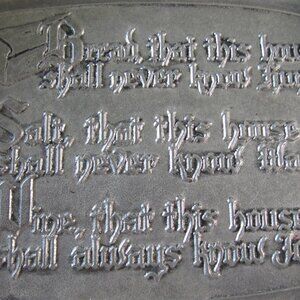 Bread, that this hou
shall never know hun
Salt, that this house
shall never know fla
Wine, that this house
shall always know